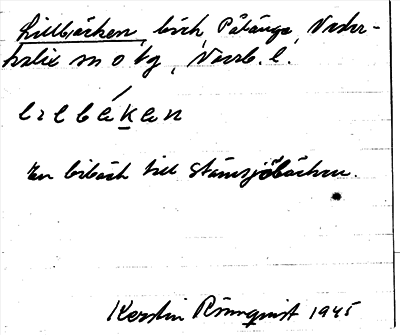 Lillbäcken, bäck, Påläng, Neder-
kalix sn o tg, Norrb. l.
lılbákan
En bibäck till Stämsjöbäcken.
Kerstin Rönnquist 1945